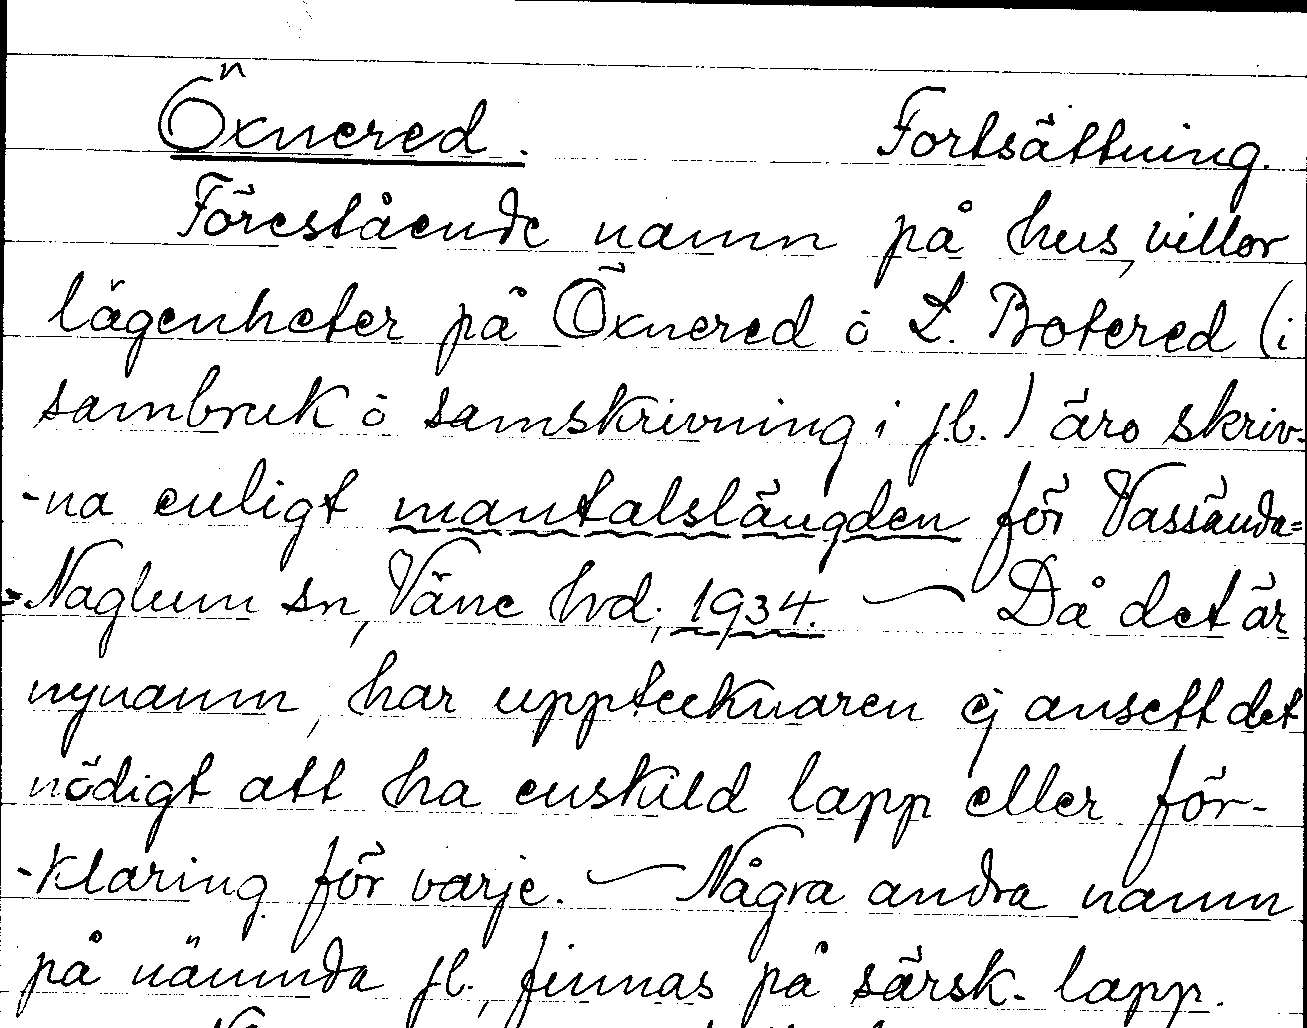 Öxnered. Fortsättning.
Förestående namn på hus, villor
lägenheter på Öxnered o L. Botered (i
sambruk o samskrivning i jb.) äro skriv-
-na enligt mantalslängden för Vassända=
=Naglum sn, Väne hd, 1934. — Då det är
nynamn, har upptecknaren ej ansett det
nödigt att ha enskild lapp eller för-
-klaring för varje. — Några andra namn
på nämnda jb., finnas på särsk. lapp.